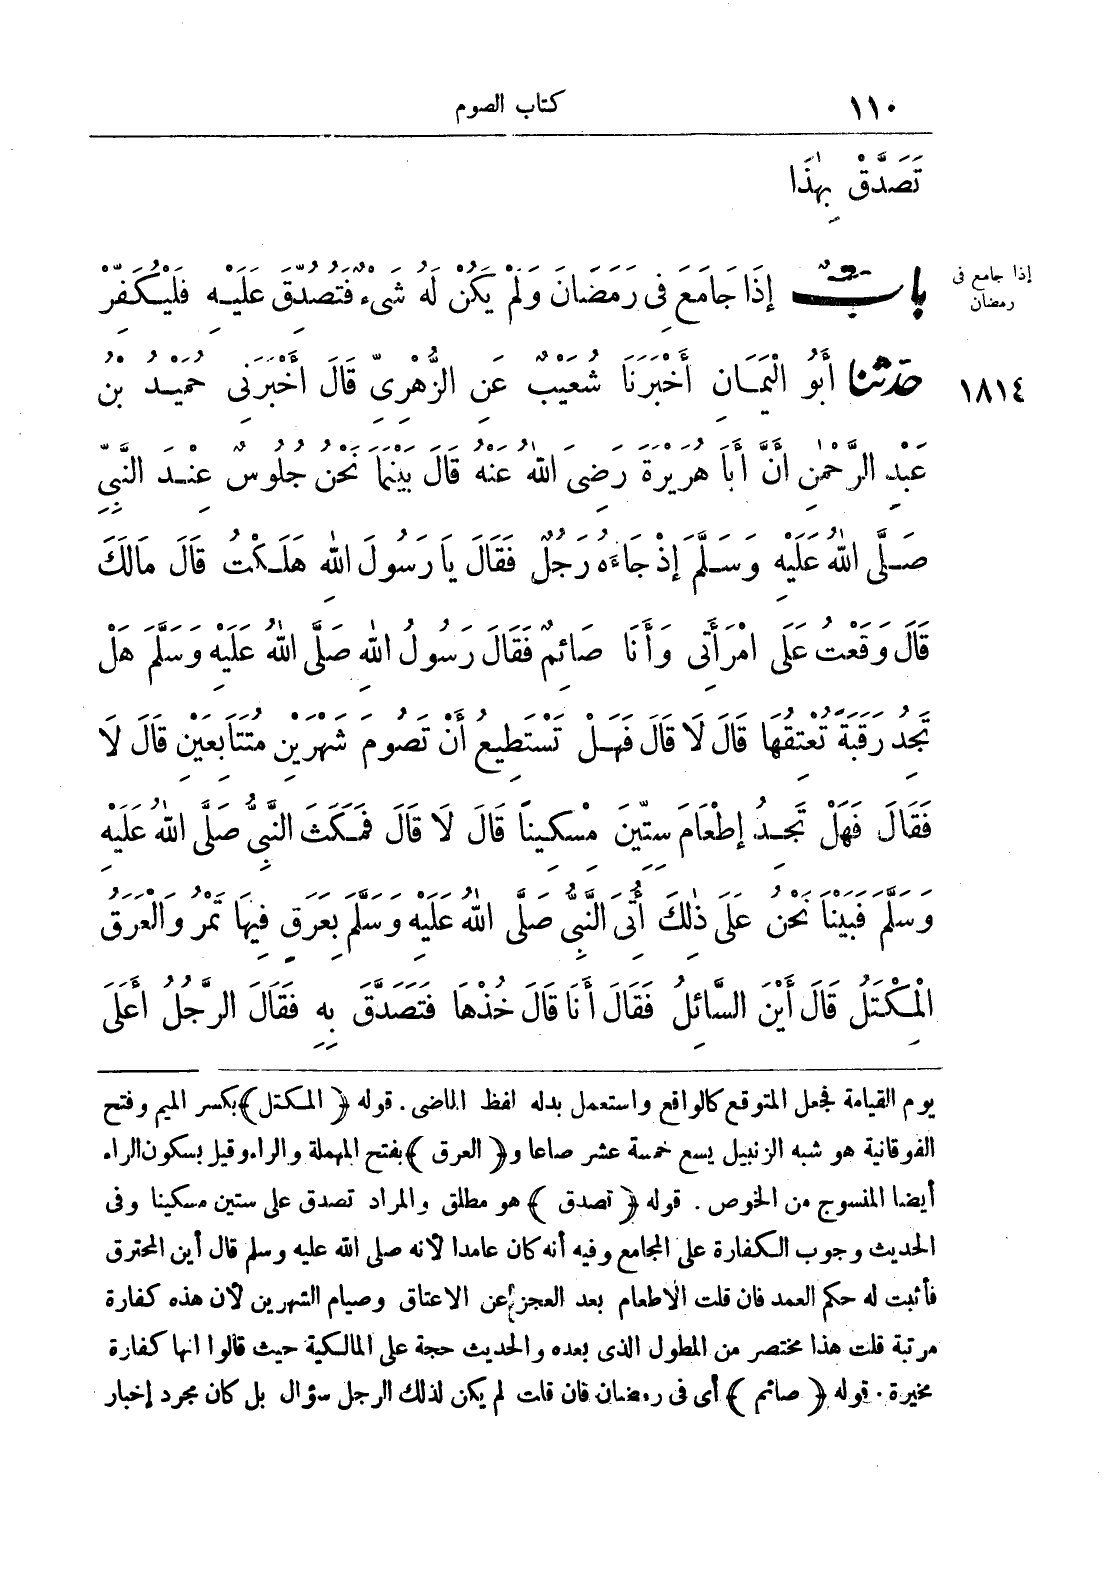 ١١٠ كتاب الصوم
تَصَدَّقْ بِهٰذَا
إذا جامع فى
رمضان
بابٌ إِذَا جَامَعَ فِى رَمَضَانَ وَلَمْ يَكُنْ لَهُ شَىْءٌ فَتُصُدِّقَ عَلَيْهِ فَلْيُكَفِّرْ
١٨١٤ حَدَّثَنَا أَبُو الْيَمَانِ أَخْبَرَنَا شُعَيْبٌ عَنِ الزُّهْرِىِّ قَالَ أَخْبَرَنِى حُمَيْدُ بْنُ
عَبْدِ الرَّحْمٰنِ أَنَّ أَبَا هُرَيْرَةَ رَضِىَ اللهُ عَنْهُ قَالَ بَيْنَمَا نَحْنُ جُلُوسٌ عِنْدَ النَّبِىِّ
صَلَّى اللهُ عَلَيْهِ وَسَلَّمَ إِذْ جَاءَهُ رَجُلٌ فَقَالَ يَا رَسُولَ اللهِ هَلَكْتُ قَالَ مَالَكَ
قَالَ وَقَعْتُ عَلَى امْرَأَتِى وَأَنَا صَائِمٌ فَقَالَ رَسُولُ اللهِ صَلَّى اللهُ عَلَيْهِ وَسَلَّمَ هَلْ
تَجِدُ رَقَبَةً تُعْتِقُهَا قَالَ لَا قَالَ فَهَلْ تَسْتَطِيعُ أَنْ تَصُومَ شَهْرَيْنِ مُتَتَابِعَيْنِ قَالَ لَا
فَقَالَ فَهَلْ تَجِدُ إِطْعَامَ سِتِّينَ مِسْكِينًا قَالَ لَا قَالَ فَمَكَثَ النَّبِىُّ صَلَّى اللهُ عَلَيْهِ
وَسَلَّمَ فَبَيْنَا نَحْنُ عَلَى ذٰلِكَ أُتِىَ النَّبِىُّ صَلَّى اللهُ عَلَيْهِ وَسَلَّمَ بِعَرَقٍ فِيهَا تَمْرٌ وَالْعَرَقُ
الْمِكْتَلُ قَالَ أَيْنَ السَّائِلُ فَقَالَ أَنَا قَالَ خُذْهَا فَتَصَدَّقْ بِهِ فَقَالَ الرَّجُلُ أَعَلَى
يوم القيامة فجعل المتوقع كالواقع واستعمل بدله لفظ الماضى. قوله ﴿المكتل﴾ بكسر الميم وفتح
الفوقانية هو شبه الزنبيل يسع خمسة عشر صاعا و﴿العرق﴾ بفتح المهملة والراء وقيل بسكون الراء
أيضا المنسوج من الخوص. قوله ﴿تصدق﴾ هو مطلق والمراد تصدق على ستين مسكينا وفى
الحديث وجوب الكفارة على المجامع وفيه أنه كان عامدا لأنه صلى الله عليه وسلم قال أين المحترق
فأثبت له حكم العمد فان قلت الاطعام بعد العجز عن الاعتاق وصيام الشهرين لأن هذه كفارة
مرتبة قلت هذا مختصر من المطول الذى بعده والحديث حجة على المالكية حيث قالوا انها كفارة
مخيرة. قوله ﴿صائم﴾ أى فى رمضان فان قلت لم يكن لذلك الرجل سؤال بل كان مجرد إخبار